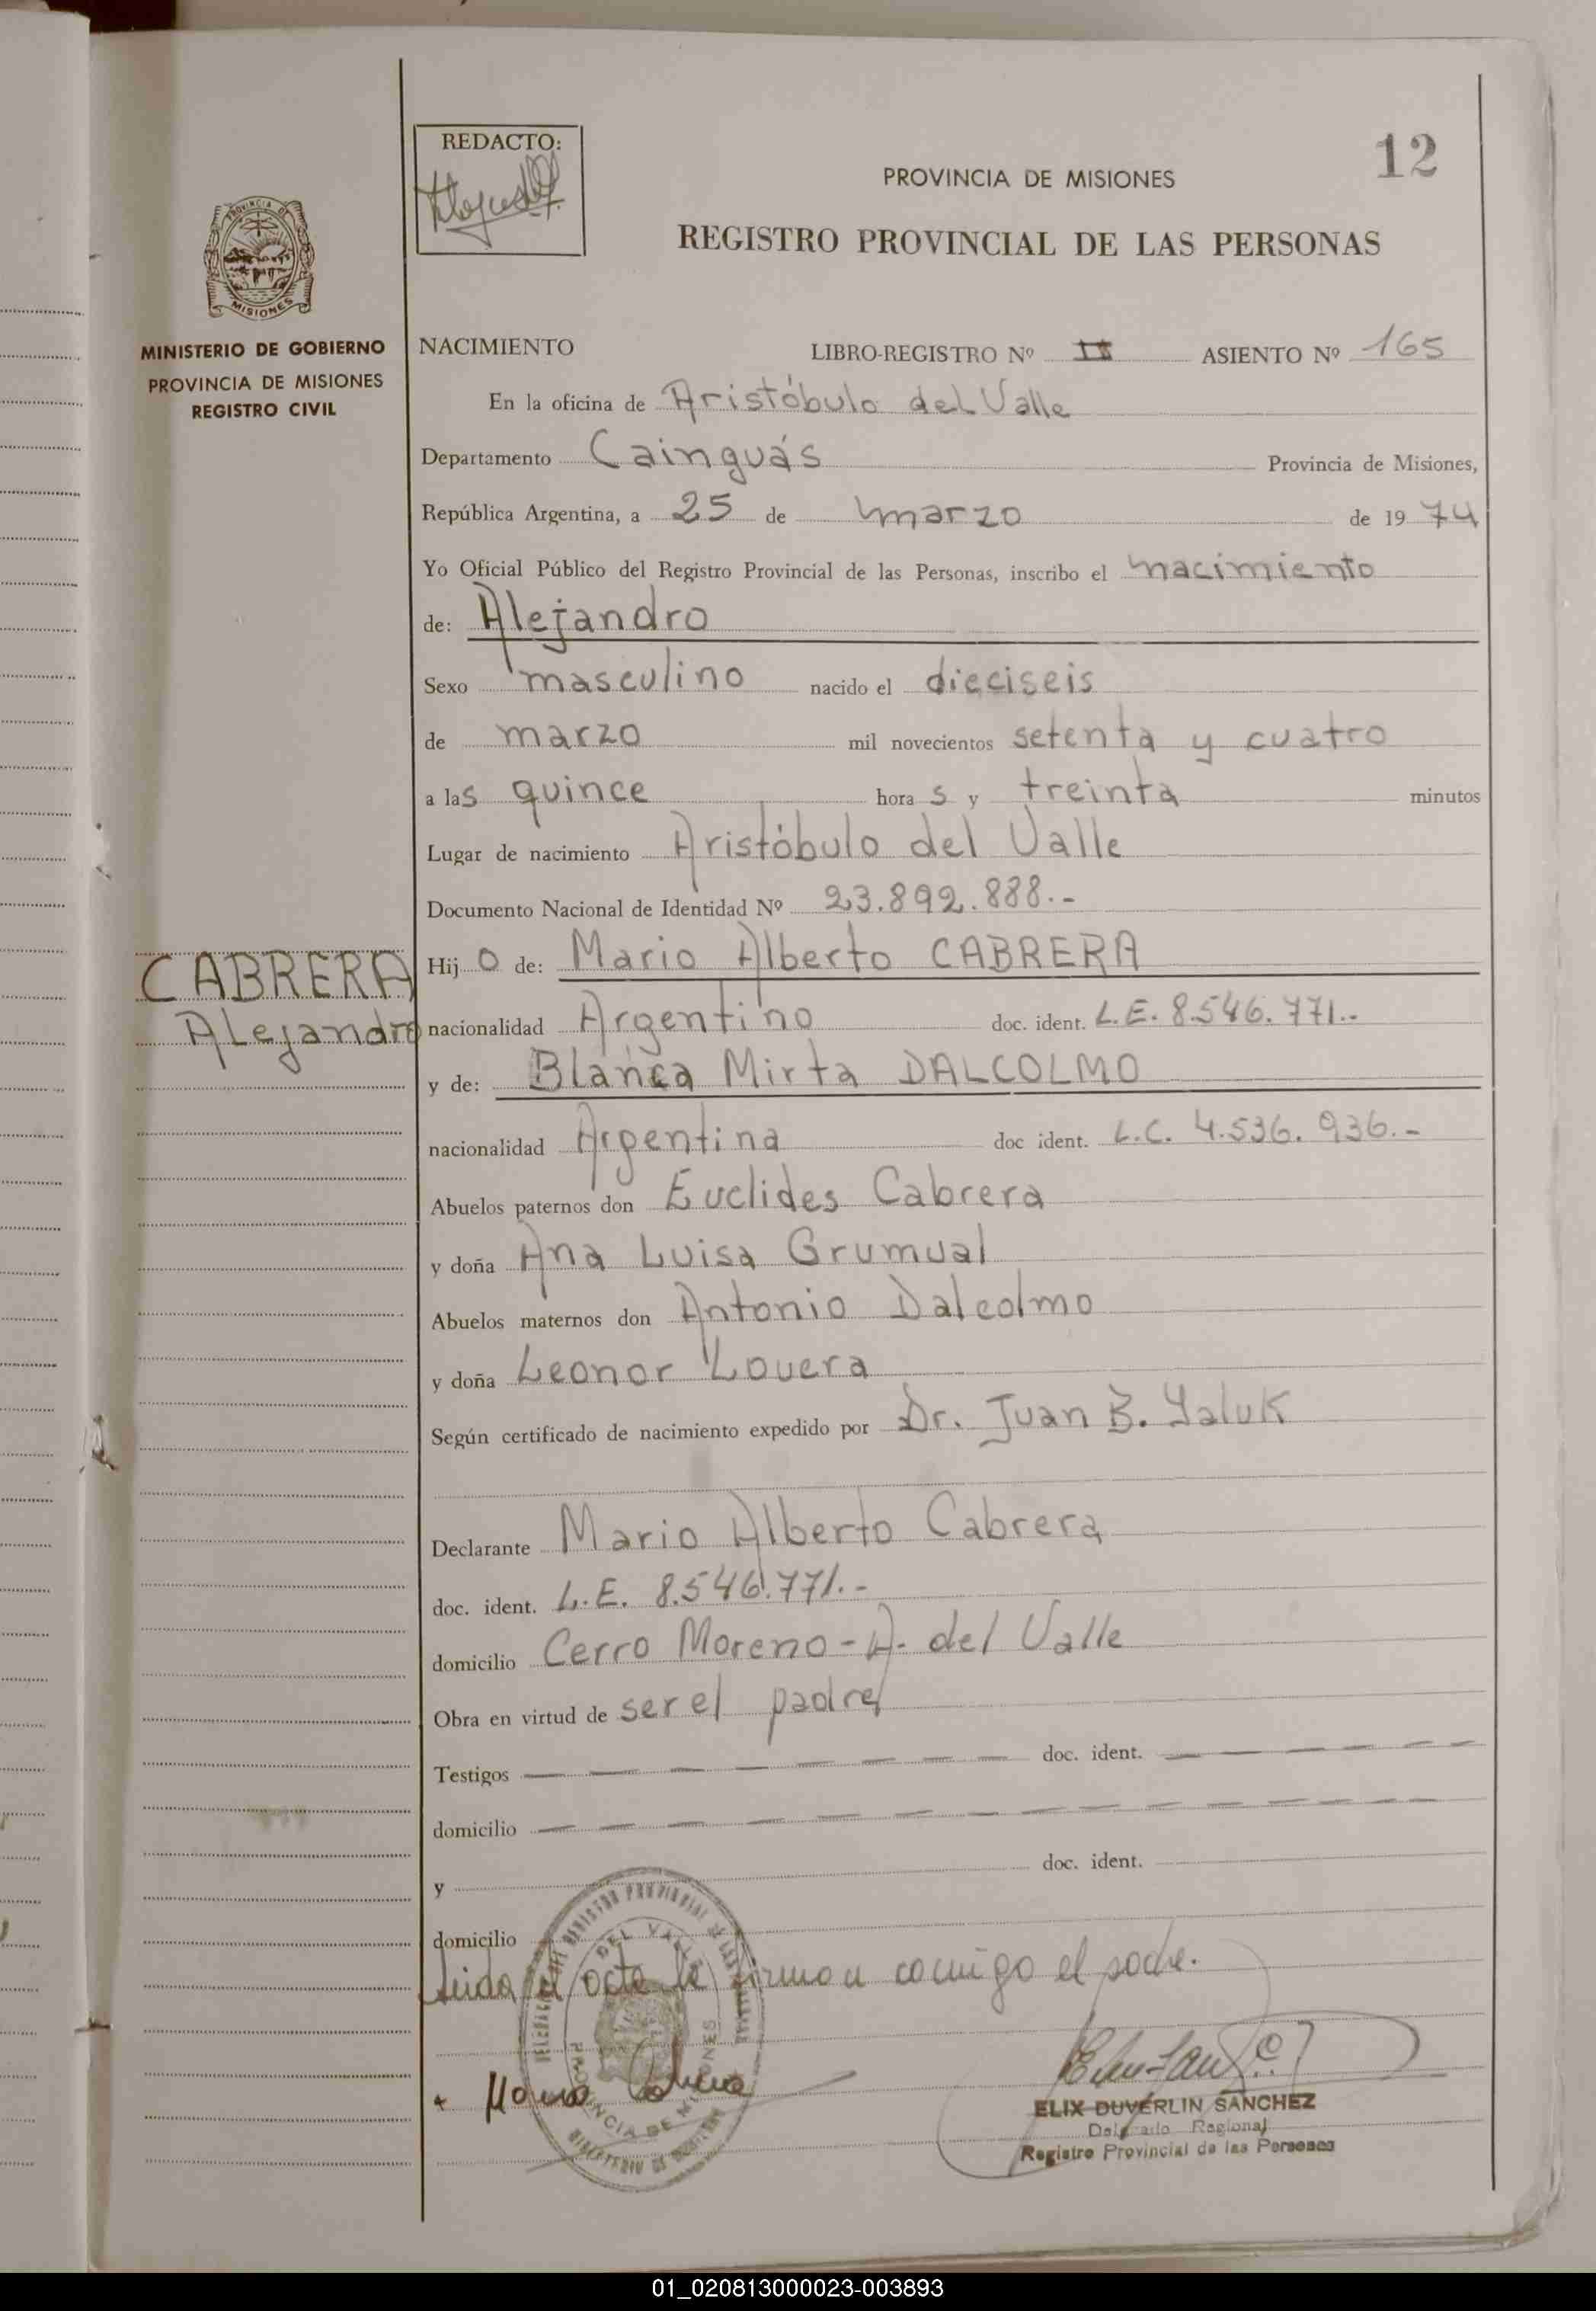 REDACTO:
12
PROVINCIA DE MISIONES
REGISTRO PROVINCIAL DE LAS PERSONAS
PROVINCIA DE
MISIONES
MINISTERIO DE GOBIERNO
PROVINCIA DE MISIONES
REGISTRO CIVIL
NACIMIENTO LIBRO-REGISTRO Nº II ASIENTO Nº 165
En la oficina de Aristóbulo del Valle
Departamento Cainguás Provincia de Misiones,
República Argentina, a 25 de marzo de 1974
Yo Oficial Público del Registro Provincial de las Personas, inscribo el nacimiento
de: Alejandro
Sexo masculino nacido el dieciseis
de marzo mil novecientos setenta y cuatro
a las quince horas y treinta minutos
Lugar de nacimiento Aristóbulo del Valle
Documento Nacional de Identidad Nº 23.892.888.-
CABRERA
Alejandro
Hijo de: Mario Alberto CABRERA
nacionalidad Argentino doc. ident. L.E. 8.546.771.-
y de: Blanca Mirta DALCOLMO
nacionalidad Argentina doc ident. L.C. 4.536.936.-
Abuelos paternos don Euclides Cabrera
y doña Ana Luisa Grumual
Abuelos maternos don Antonio Dalcolmo
y doña Leonor Lovera
Según certificado de nacimiento expedido por Dr. Juan B. Yaluk
Declarante Mario Alberto Cabrera
doc. ident. L.E. 8.546.771.-
domicilio Cerro Moreno - A. del Valle
Obra en virtud de ser el padre
Testigos doc. ident.
domicilio
y doc. ident.
domicilio
Leida el acta la firman conmigo el padre.
REGISTRO PROVINCIAL DE LAS
DEL VALLE
PROVINCIA DE MISIONES
MINISTERIO DE GOBIERNO
Mario Cabrera
ELIX DUVERLIN SANCHEZ
Delegado Regional
Registro Provincial de las Personas
01_020813000023-003893